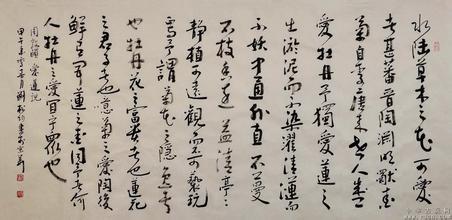 水陸草木之花可愛
者甚蕃晉陶淵明獨愛
菊自李唐來世人盛
愛牡丹予獨愛蓮之
出淤泥而不染濯清漣而
不妖中通外直不蔓
不枝香遠益清亭亭
靜植可遠觀而不可褻玩
焉予謂菊花之隱逸者
也牡丹花之富貴者也蓮花
之君子者也噫菊之愛陶後
鮮有聞蓮之愛同予者何
人牡丹之愛宜乎眾也
周敦頤 愛蓮說
甲午